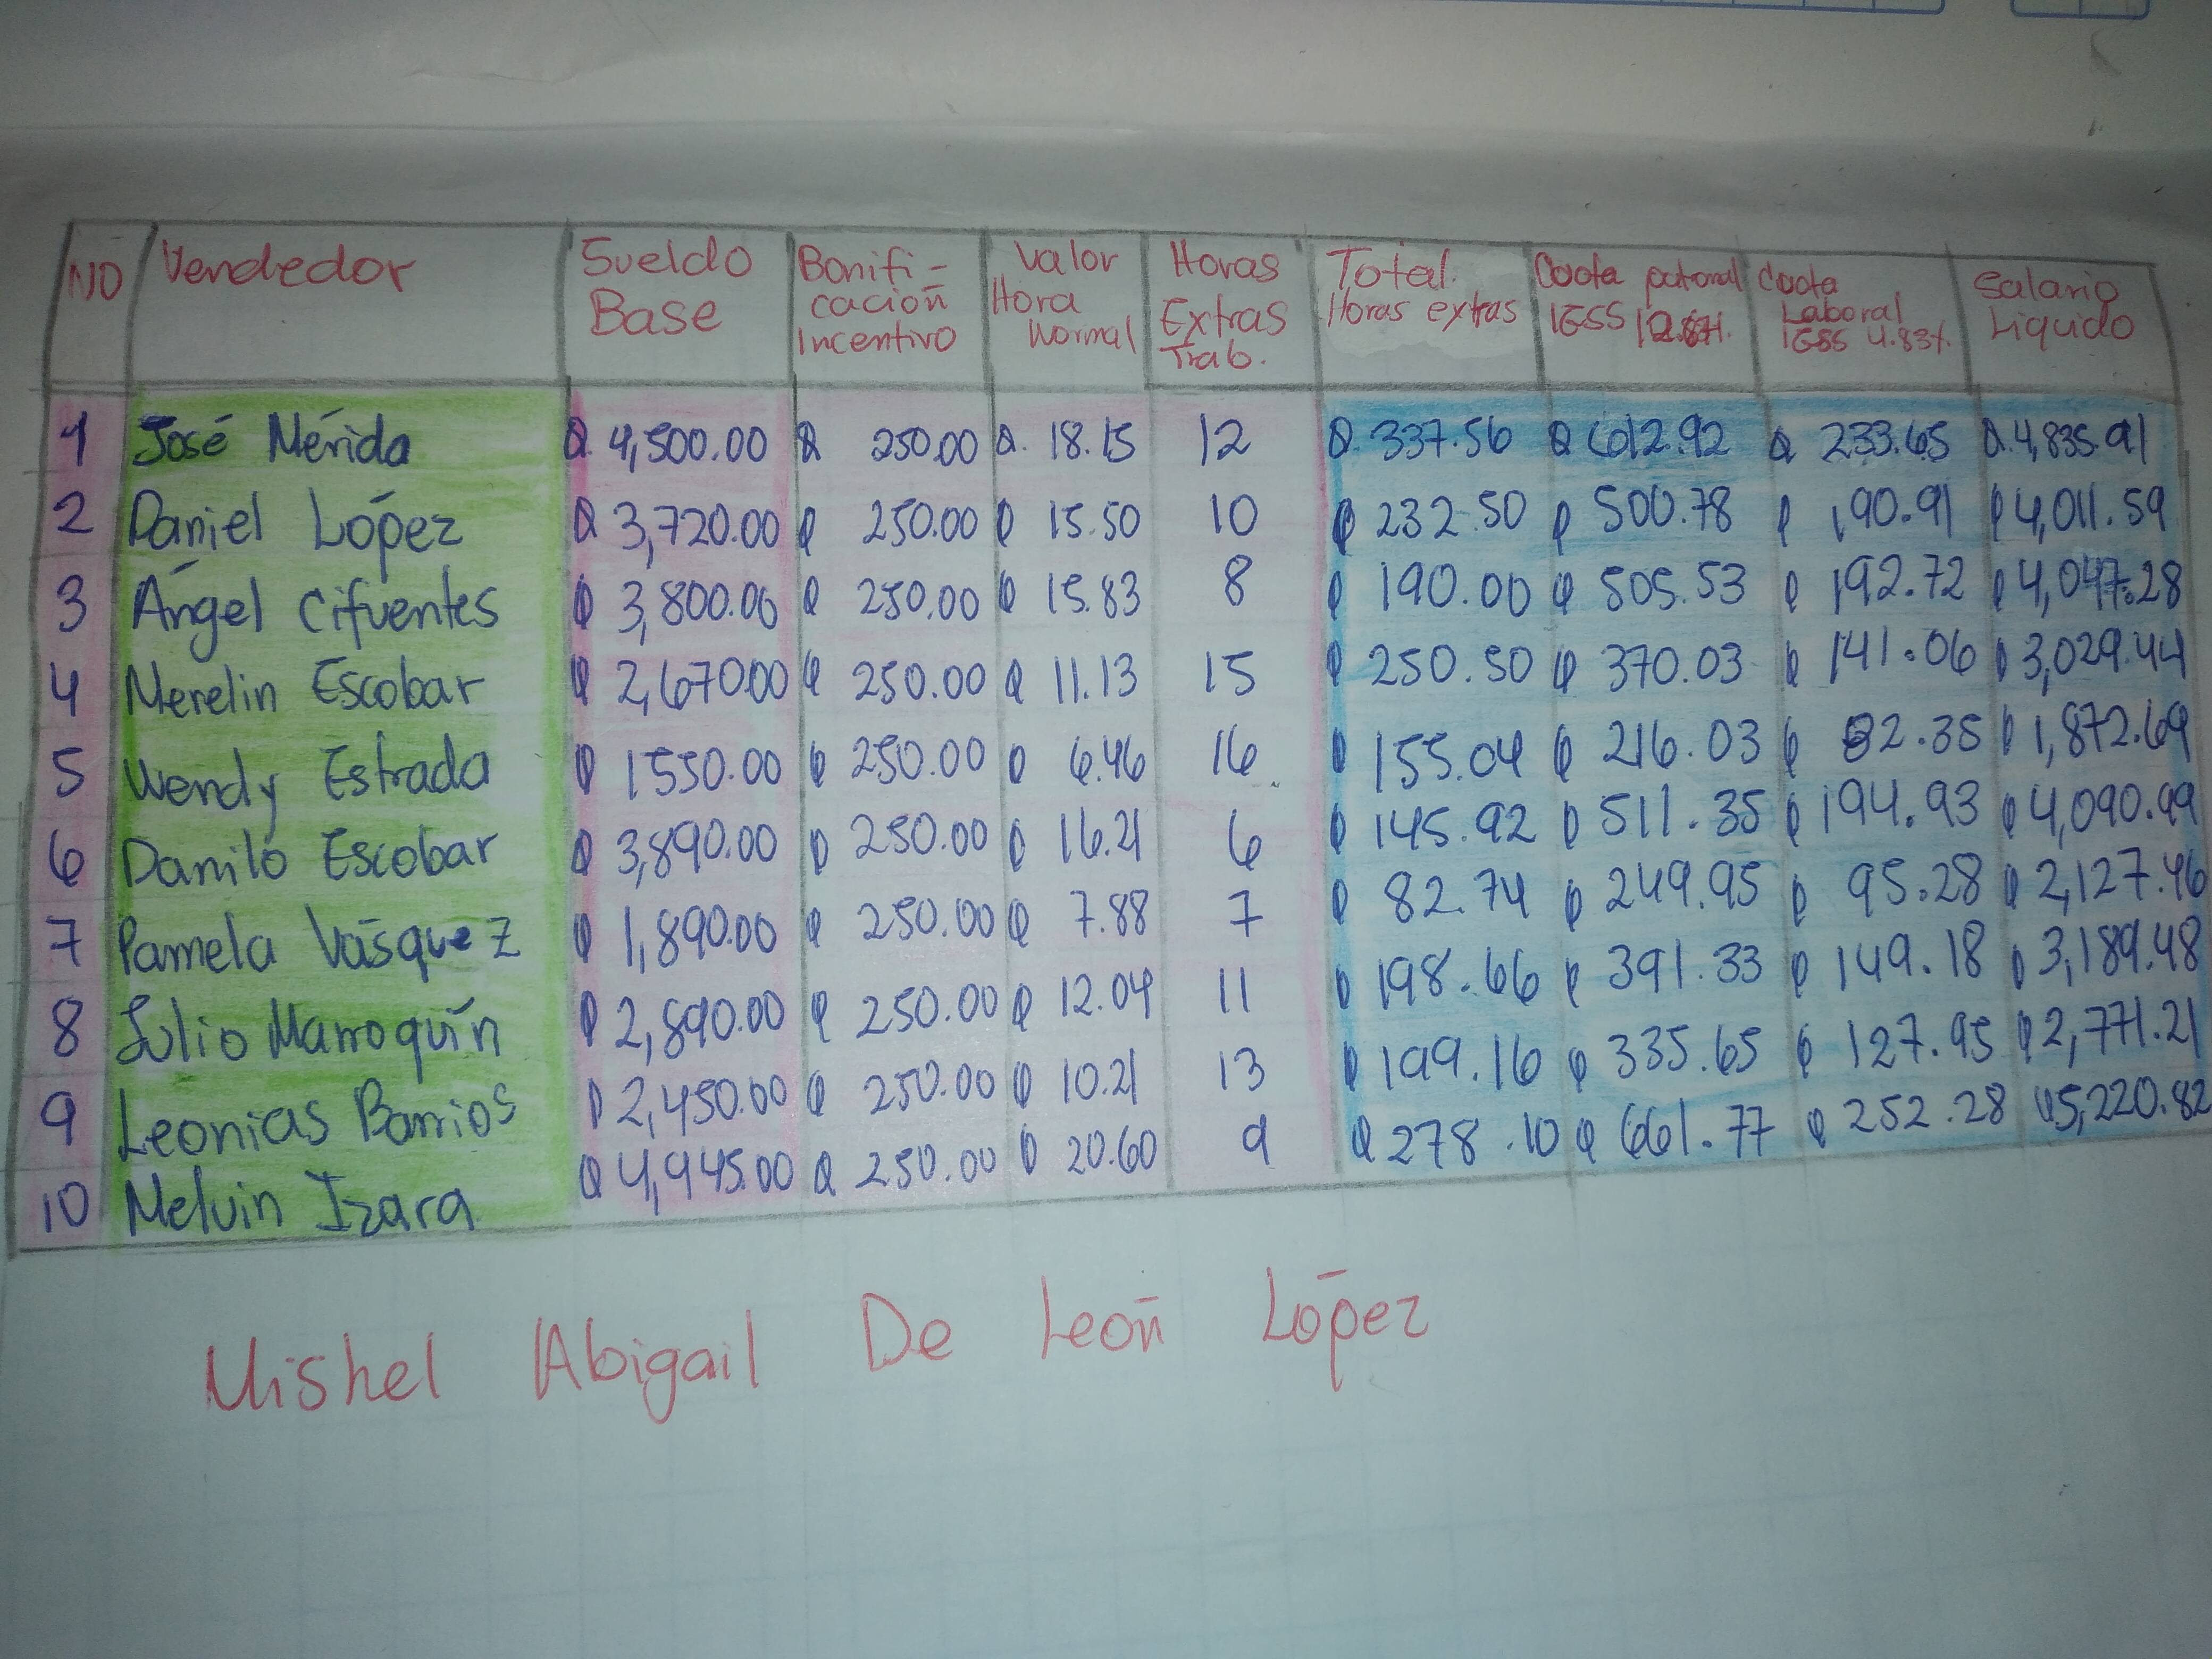 NO Vendedor Sueldo Base Bonifi-cación Incentivo Valor Hora Normal Horas Extras Trab. Total Horas extras Cuota patronal IGSS 12.67%. Cuota Laboral IGSS 4.83%. Salario Liquido
1 José Mérida Q. 4,500.00 Q 250.00 Q. 18.15 12 Q. 337.56 Q 612.92 Q 233.65 Q. 4,835.91
2 Daniel López Q 3,720.00 Q 250.00 Q 15.50 10 Q 232.50 Q 500.78 Q 190.91 Q 4,011.59
3 Ángel Cifuentes Q 3,800.00 Q 250.00 Q 15.83 8 Q 190.00 Q 505.53 Q 192.72 Q 4,047.28
4 Merelin Escobar Q 2,670.00 Q 250.00 Q 11.13 15 Q 250.50 Q 370.03 Q 141.06 Q 3,029.44
5 Wendy Estrada Q 1550.00 Q 250.00 Q 6.46 16 Q 155.04 Q 216.03 Q 82.35 Q 1,872.69
6 Danilo Escobar Q 3,890.00 Q 250.00 Q 16.21 6 Q 145.92 Q 511.35 Q 194.93 Q 4,090.99
7 Pamela Vásquez Q 1,890.00 Q 250.00 Q 7.88 7 Q 82.74 Q 249.95 Q 95.28 Q 2,127.46
8 Julio Marroquín Q 2,890.00 Q 250.00 Q 12.04 11 Q 198.66 Q 391.33 Q 149.18 Q 3,189.48
9 Leonias Barrios Q 2,450.00 Q 250.00 Q 10.21 13 Q 199.16 Q 335.65 Q 127.95 Q 2,771.21
10 Melvin Izara Q 4,945.00 Q 250.00 Q 20.60 9 Q 278.10 Q 661.77 Q 252.28 Q 5,220.82
Mishel Abigail De León López